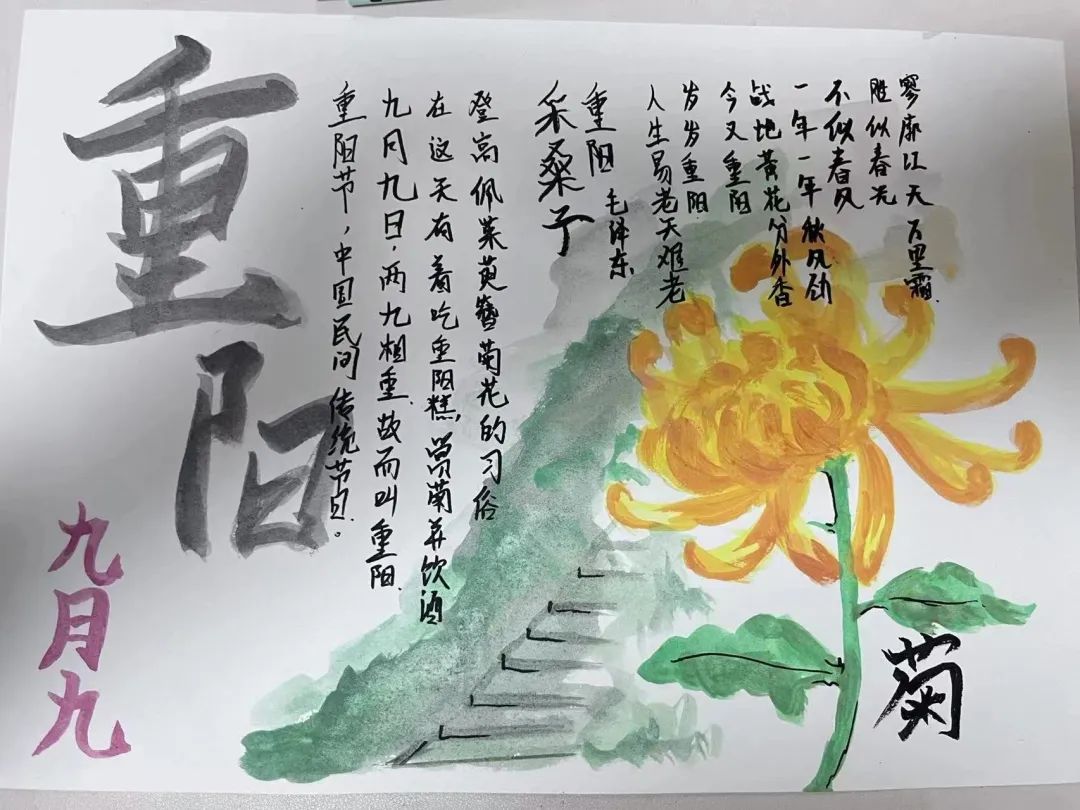 重阳
九月九
重阳节，中国民间传统节日。
九月九日，两九相重，故而叫重阳.
在这天有着吃重阳糕，赏菊并饮酒
登高佩茱萸簪菊花的习俗
采桑子
重阳 毛泽东
人生易老天难老
岁岁重阳.
今又重阳
战地黄花分外香
一年一年秋风劲
不似春风
胜似春光
寥廓江天 万里霜.
菊